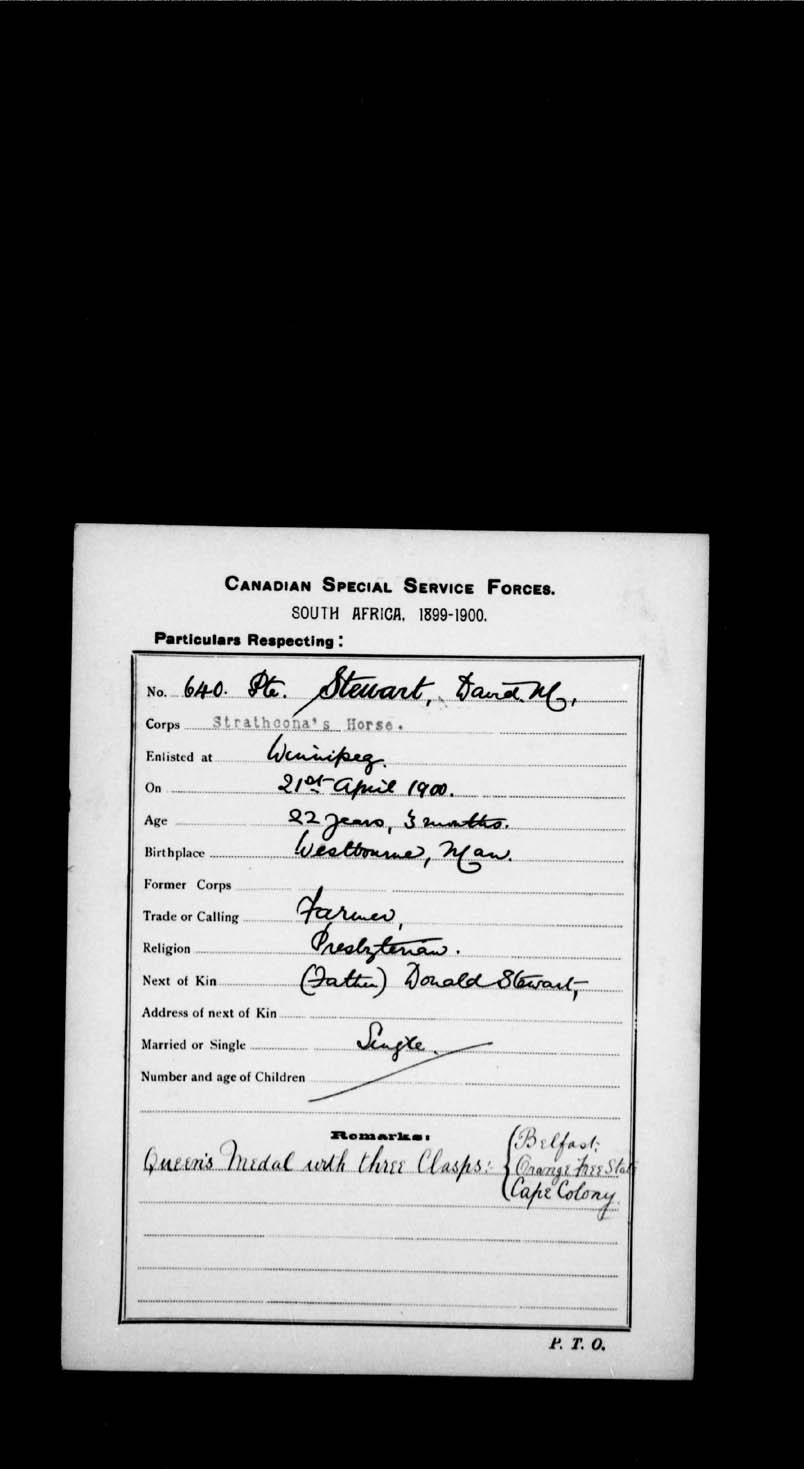 CANADIAN SPECIAL SERVICE FORCES.
SOUTH AFRICA, 1899-1900.
Particulars Respecting:
No. 640. Pte. Stewart, David. M,
Corps Strathcona's Horse.
Enlisted at Winnipeg.
On 21st April 1900.
Age 22 years, 3 months.
Birthplace Westbourne, Man.
Former Corps
Trade or Calling Farmer,
Religion Presbyterian.
Next of Kin (Father) Donald Stewart,
Address of next of Kin
Married or Single Single.
Number and age of Children
Remarks:
Belfast;
Queen's Medal with three Clasps: Orange Free State
Cape Colony.
P. T. O.